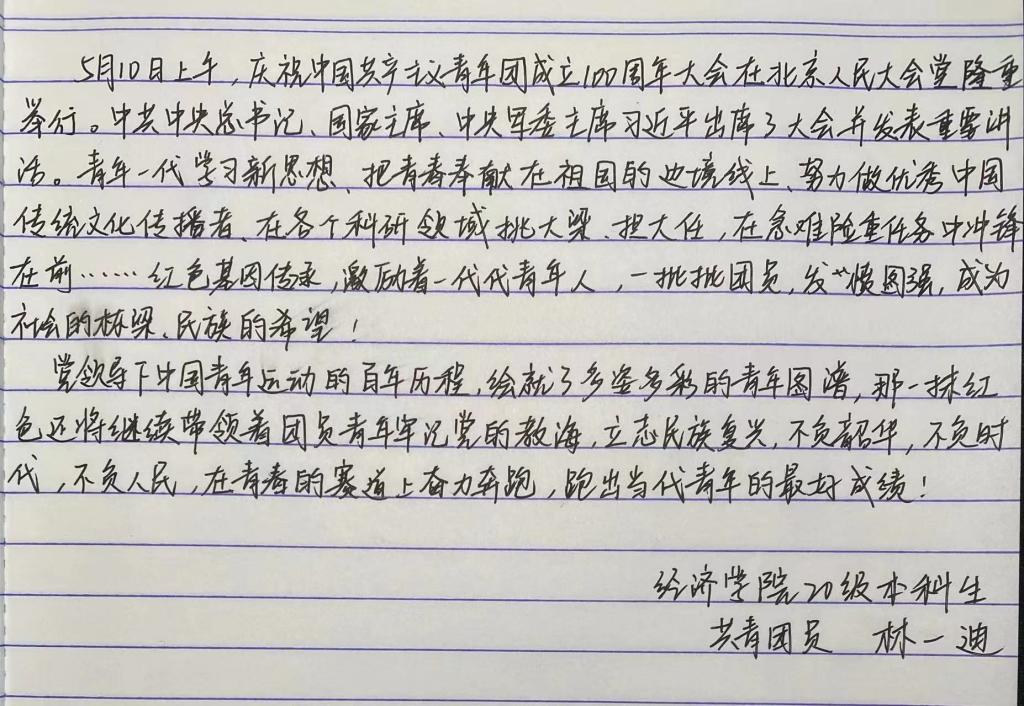 5月10日上午，庆祝中国共产主义青年团成立100周年大会在北京人民大会堂隆重
举行。中共中央总书记、国家主席、中央军委主席习近平出席了大会并发表重要讲
话。青年一代学习新思想、把青春奉献在祖国的边境线上、努力做优秀中国
传统文化传播者、在各个科研领域挑大梁、担大任，在急难险重任务中冲锋
在前……红色基因传承，激励着一代代青年人，一批批团员，发愤图强，成为
社会的栋梁、民族的希望！
党领导下中国青年运动的百年历程，绘就了多姿多彩的青年图谱，那一抹红
色还将继续带领着团员青年牢记党的教诲，立志民族复兴，不负韶华，不负时
代，不负人民，在青春的赛道上奋力奔跑，跑出当代青年的最好成绩！
经济学院20级本科生
共青团员 林一迪